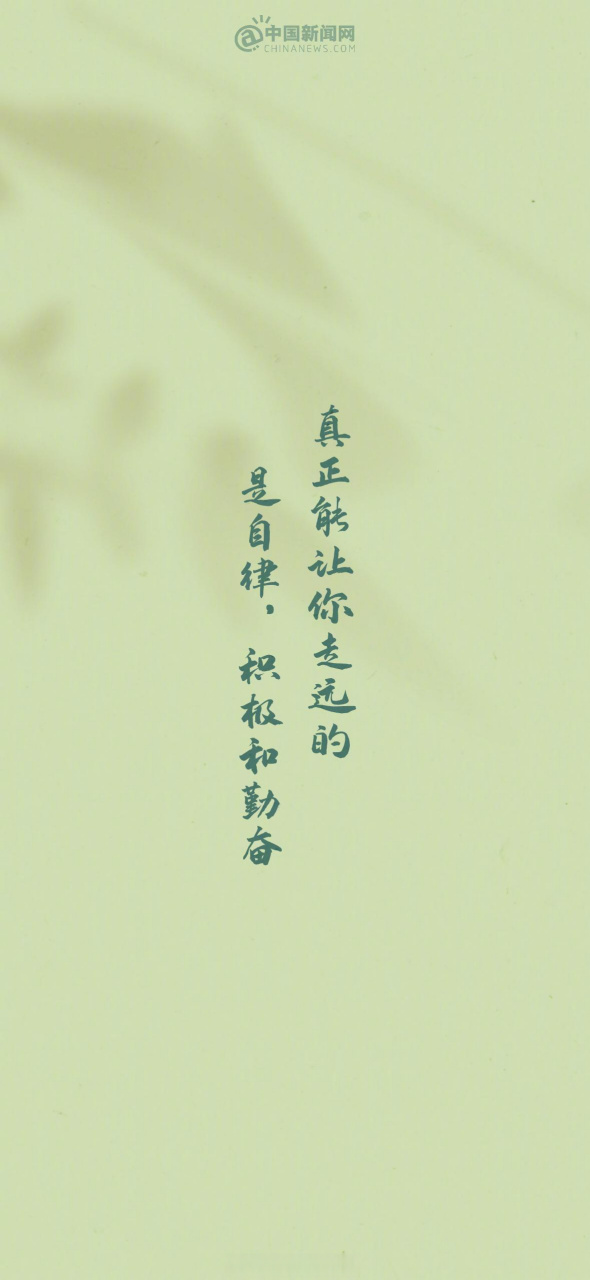 @中国新闻网
CHINANEWS.COM
真正能让你走远的
是自律，积极和勤奋